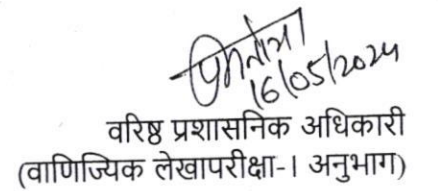 16/05/2024
वरिष्ठ प्रशासनिक अधिकारी
(वाणिज्यिक लेखापरीक्षा-I अनुभाग)